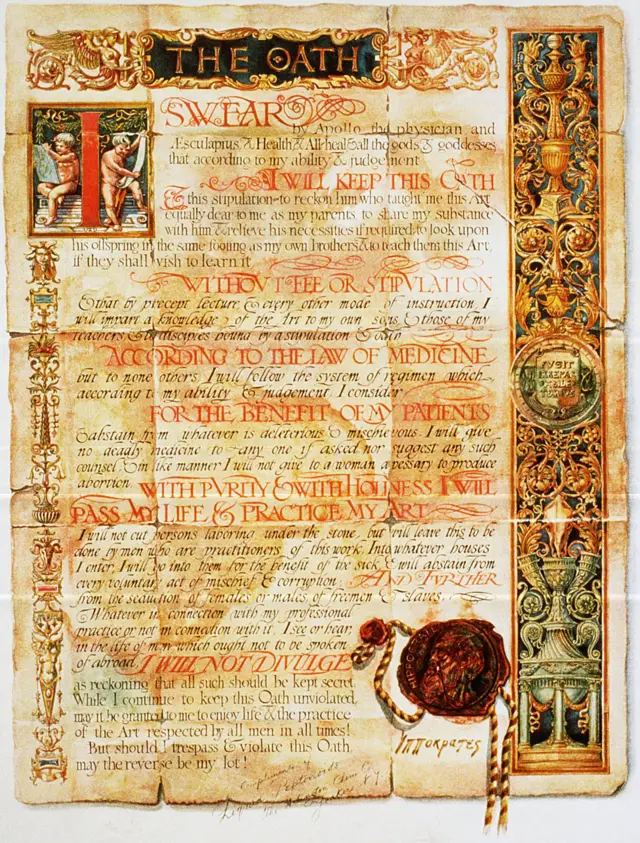 THE OATH
I
SWEAR
by Apollo the physician and
Æsculapius, & Health & All-heal & all the gods & goddesses
that according to my ability & judgement
I WILL KEEP THIS OATH
& this stipulation – to reckon him who taught me this Art
equally dear to me as my parents, to share my substance
with him & relieve his necessities if required, to look upon
his offspring in the same footing as my own brothers & to teach them this Art,
if they shall wish to learn it
WITHOVT FEE OR STIPVLATION
& that by precept lecture & every other mode of instruction, I
will impart a knowledge of the Art to my own sons & those of my
teachers & to disciples bound by a stipulation & oath
ACCORDING TO THE LAW OF MEDICINE
but to none others. I will follow the system of regimen which
according to my ability & judgement I consider
FOR THE BENEFIT OF MY PATIENTS
& abstain from whatever is deleterious & mischievous. I will give
no deadly medicine to any one if asked nor suggest any such
counsel & in like manner I will not give to a woman a pessary to produce
abortion. WITH PVRITY & WITH HOLINESS I WILL
PASS MY LIFE & PRACTICE MY ART
I will not cut persons laboring under the stone, but will leave this to be
done by men who are practitioners of this work. Into whatever houses
I enter, I will go into them for the benefit of the sick & will abstain from
every voluntary act of mischief & corruption: AND FVRTHER
from the seduction of females or males of freemen & slaves.
Whatever in connection with my professional
practice or not in connection with it, I see or hear,
in the life of men which ought not to be spoken
of abroad, I WILL NOT DIVULGE
as reckoning that all such should be kept secret.
While I continue to keep this Oath unviolated,
may it be granted to me to enjoy life & the practice
of the Art respected by all men in all times!
But should I trespass & violate this Oath,
may the reverse be my lot!
Ιπποκρατες